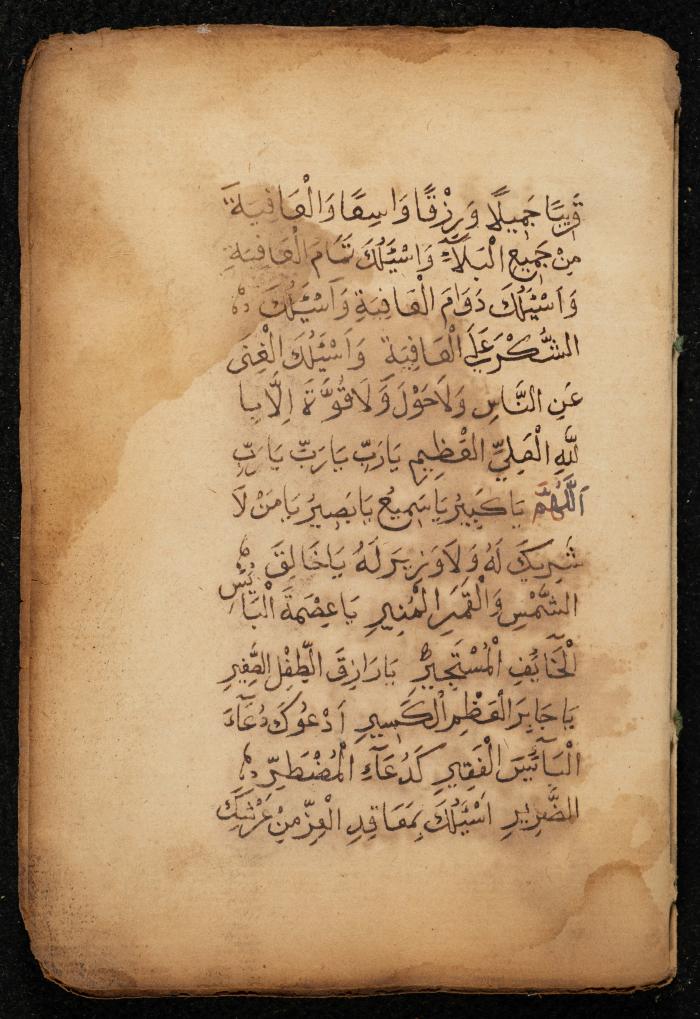 قَرِيبًا جَمِيلًا وَرِزْقًا وَاسِعًا وَالْعَافِيَةَ
مِنْ جَمِيعِ الْبَلَآءِ وَاَسْئَلُكَ تَمَامَ الْعَافِيَةِ
وَاَسْئَلُكَ دَوَامَ الْعَافِيَةِ وَاَسْئَلُكَ
الشُّكْرَ عَلَى الْعَافِيَةِ وَاَسْئَلُكَ الْغِنٰى
عَنِ النَّاسِ وَلَاحَوْلَ وَلَاقُوَّةَ اِلَّا بِا
للّٰهِ الْعَلِيِّ الْعَظِيمِ يَارَبِّ يَارَبِّ يَارَبِّ
اَللّٰهُمَّ يَاكَبِيرُ يَاسَمِيعُ يَابَصِيرُ يَامَنْ لَا
شَرِيكَ لَهُ وَلَاوَزِيرَ لَهُ يَاخَالِقَ
الشَّمْسِ وَالْقَمَرِ الْمُنِيرِ يَاعِصْمَةَ الْبَائِسِ
الْخَآئِفِ الْمُسْتَجِيرِ يَارَازِقَ الطِّفْلِ الصَّغِيرِ
يَاجَابِرَ الْعَظْمِ الْكَسِيرِ اَدْعُوكَ دُعَآءَ
الْبَآئِسِ الْفَقِيرِ كَدُعَآءِ الْمُضْطَرِّ
الضَّرِيرِ اَسْئَلُكَ بِمَعَاقِدِ الْعِزِّ مِنْ عَرْشِكَ